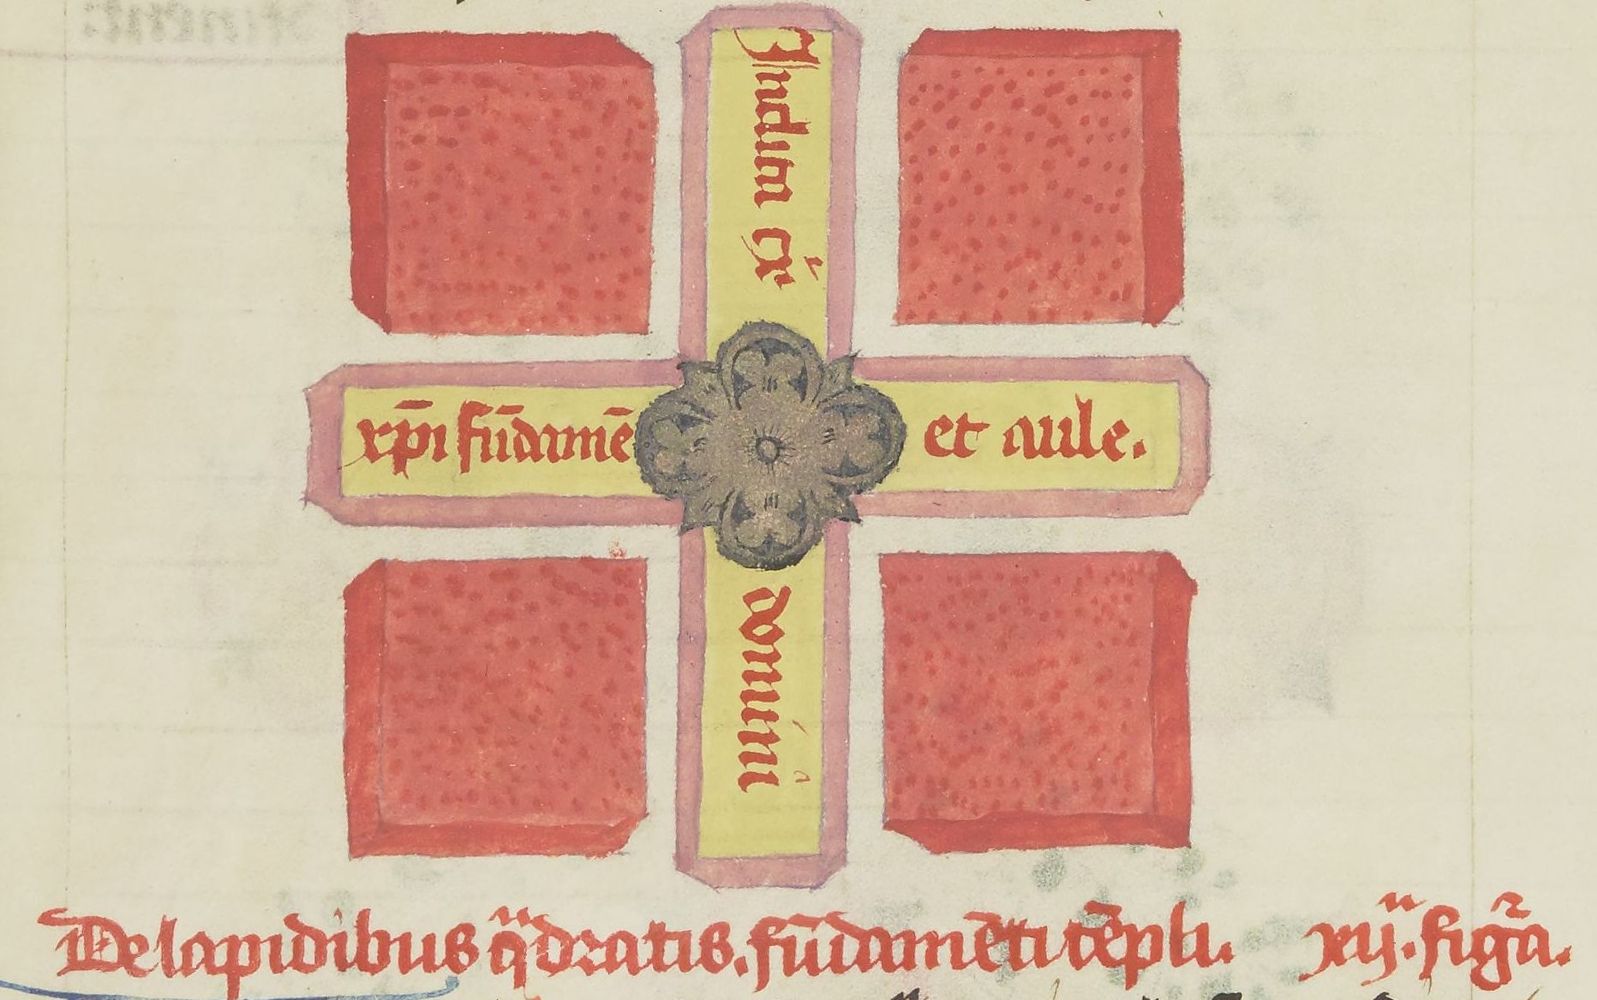 Inclita cr̄
xp̄i fūdamē
et aule.
domini
De lapidibus qͣdratis. fūdamēti tēpli. xijᵃ. figᵃa.